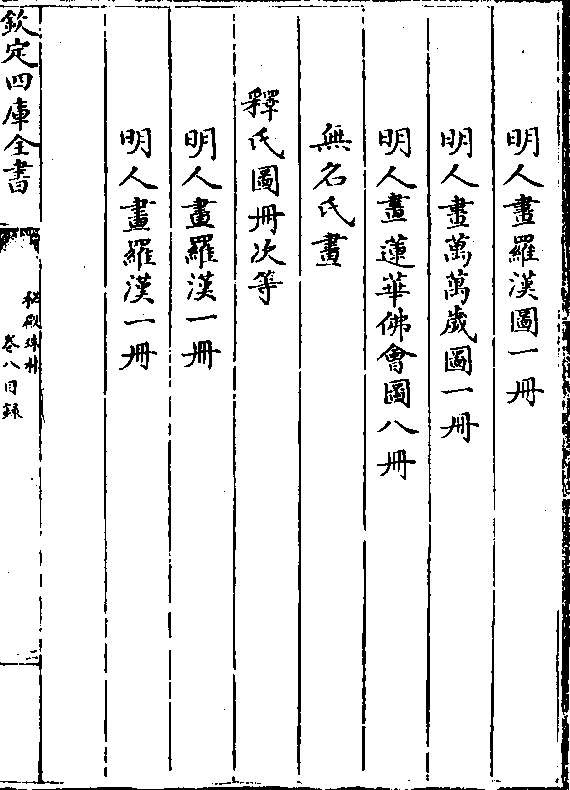 明人畫羅漢圖一冊
明人畫萬萬歲圖一冊
明人畫蓮華佛會圖八冊
無名氏畫
釋氏圖冊次等
明人畫羅漢一冊
明人畫羅漢一冊
欽定四庫全書
秘殿珠林
卷八目錄